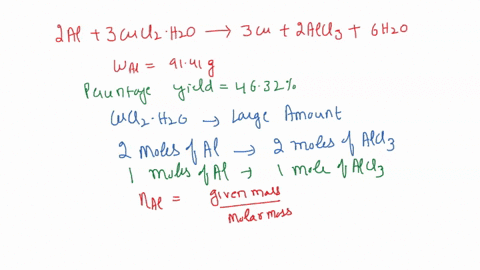 2Al + 3CuCl2·H2O → 3Cu + 2AlCl3 + 6H2O
WAl = 91.41 g
Percentage yield = 46.32%
CuCl2·H2O → Large Amount
2 moles of Al → 2 moles of AlCl3
1 moles of Al → 1 mole of AlCl3
nAl = given mass
molar mass